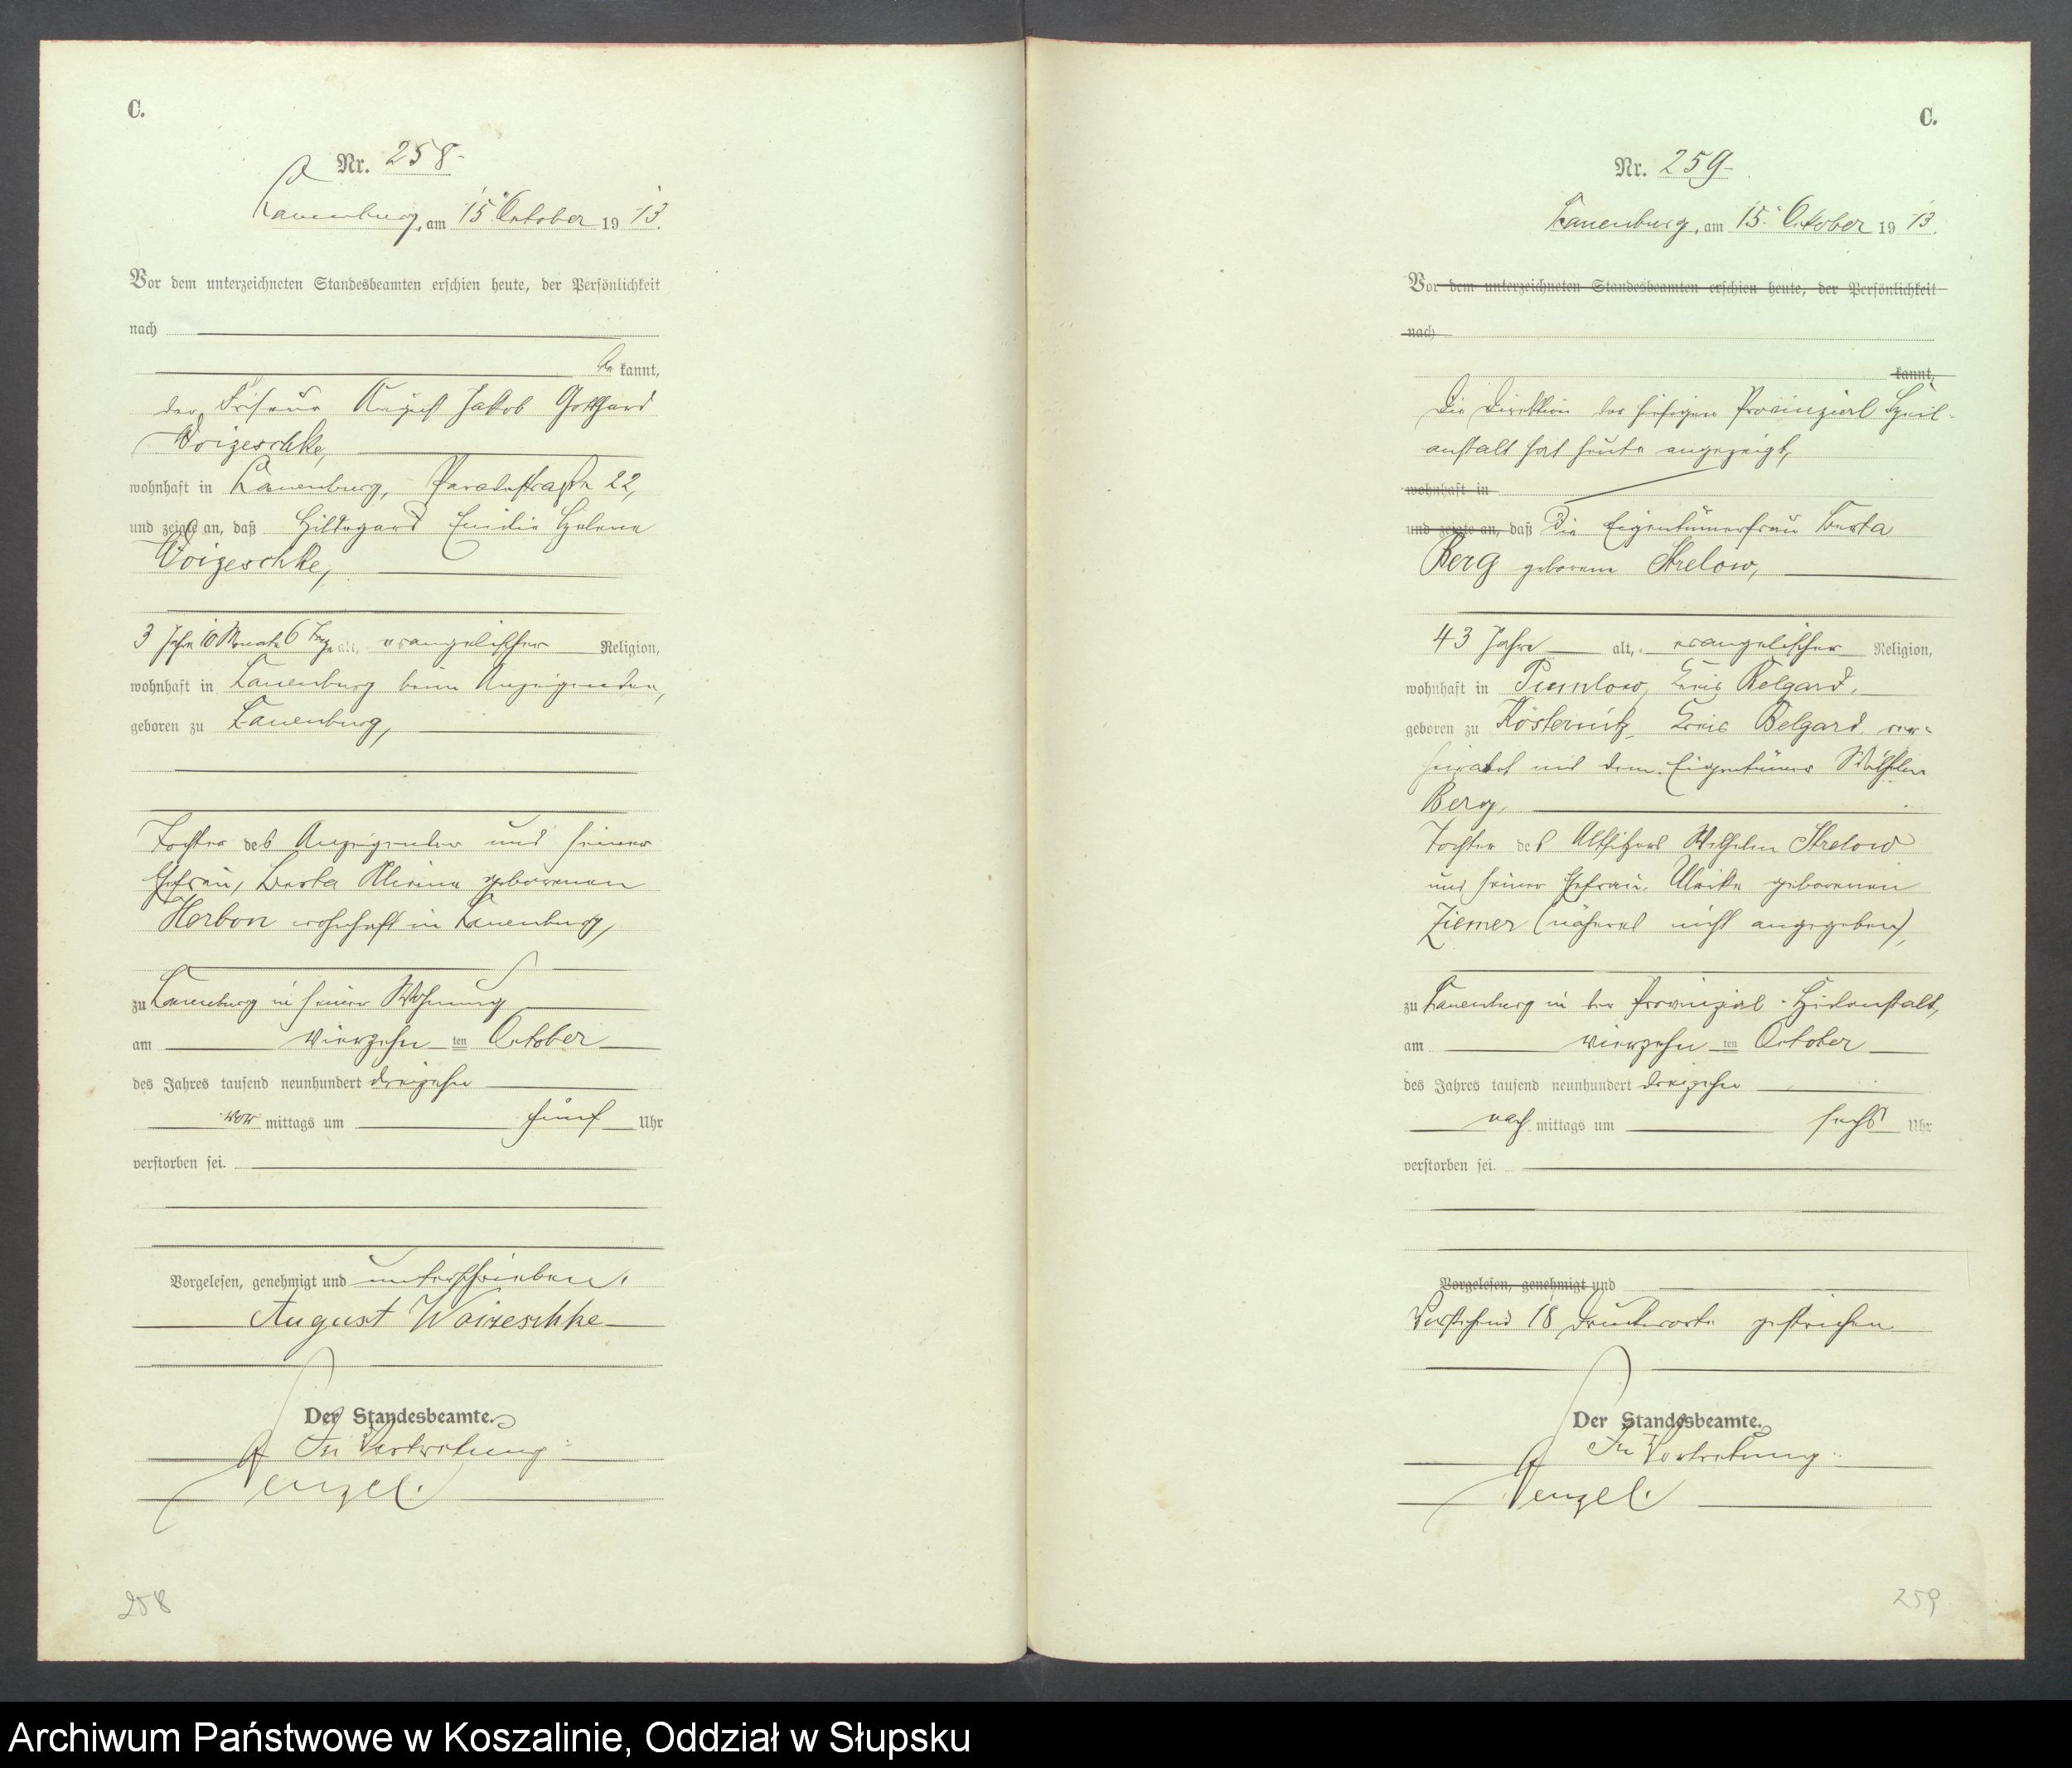 C.
Nr. 258.
Lauenburg, am 15. October 1913.
Vor dem unterzeichneten Standesbeamten erschien heute, der Persönlichkeit
nach
be kannt,
der Friseur August Jakob Gotthard
Woizeschke,
wohnhaft in Lauenburg, Paradestraße 22,
und zeigte an, daß Hildegard Emilie Helene
Woizeschke,
3 Jahre 10 Monate 6 Tage alt, evangelischer Religion,
wohnhaft in Lauenburg beim Anzeigenden,
geboren zu Lauenburg,
Tochter des Anzeigenden und seiner
Ehefrau, Berta geborenen
Herbon wohnhaft in Lauenburg,
zu Lauenburg in seiner Wohnung
am vierzehn ten October
des Jahres tausend neunhundert dreizehn
vor mittags um fünf Uhr
verstorben sei.
Vorgelesen, genehmigt und unterschrieben.
August Woizeschke
Der Standesbeamte.
In Vertretung:
Wenzel.
258
C.
Nr. 259.
Lauenburg, am 15. October 1913.
Vor dem unterzeichneten Standesbeamten erschien heute, der Persönlichkeit
nach
kannt,
Die Direktion der hiesigen Provinzial Heil-
anstalt hat heute angezeigt,
wohnhaft in
und zeigte an, daß die Eigentümerfrau Berta
Berg geborene Strelow,
43 Jahre alt, evangelischer Religion,
wohnhaft in Pumlow, Kreis Belgard,
geboren zu Kösternitz, Kreis Belgard, ver-
heiratet mit dem Eigentümer Wilhelm
Berg,
Tochter des Altsitzers Wilhelm Strelow
und seiner Ehefrau, Ulrike geborenen
Ziemer (näheres nicht angegeben),
zu Lauenburg in der Provinzial-Heilanstalt,
am vierzehn ten October
des Jahres tausend neunhundert dreizehn
nach mittags um sechs Uhr
verstorben sei.
Vorgelesen, genehmigt und
Vorstehend 18 Druckworte gestrichen
Der Standesbeamte.
In Vertretung:
Wenzel.
259
Archiwum Państwowe w Koszalinie, Oddział w Słupsku